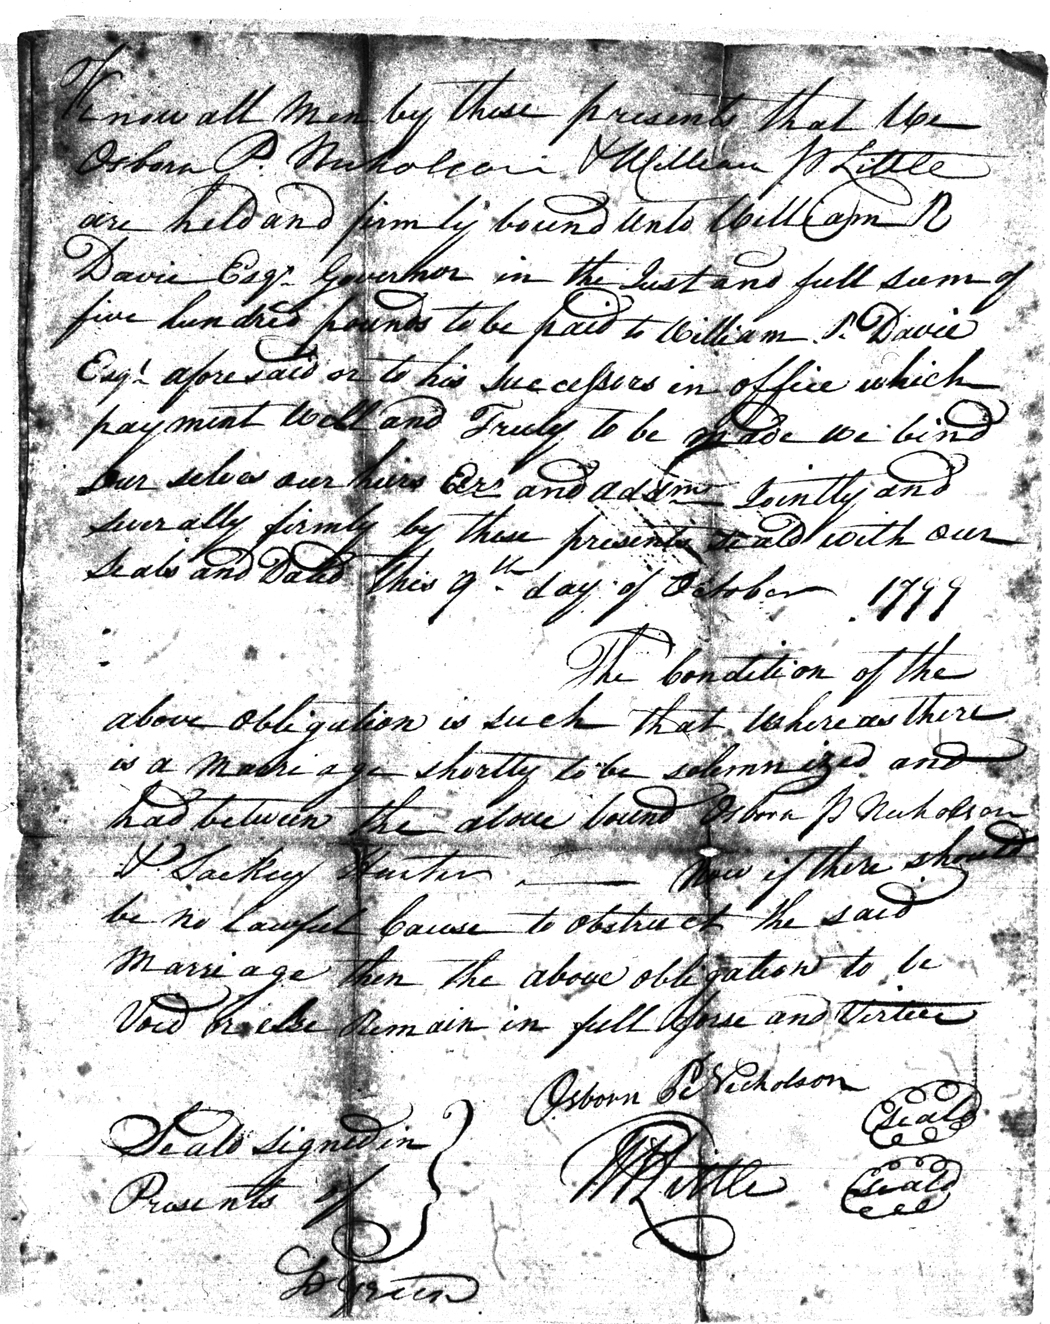 Know all men by these presents that We
Osborn P. Nicholson & William P Little
are held and firmly bound unto William R
Davie Esqr. Governor in the Just and full sum of
five hundred pounds to be paid to William R. Davie
Esqr. aforesaid or to his Successors in office which
payment Well and Truly to be made we bind
our selves our heirs Exrs and Adsmrs Jointly and
severally firmly by these presents seald with our
seals and Dated this 9th day of October 1799
The Condition of the
above obligation is such that Whereas there
is a Marriage shortly to be solemnized and
had between the above bound Osborn P Nicholson
& Lackey Hunter Now if there should
be no Lawful Cause to obstruct the said
Marriage then the above obligation to be
Void or else Remain in full Forse and Virtue
Osborn P. Nicholson seald
Seald signed in
WPLittle seald
Presents of
Green